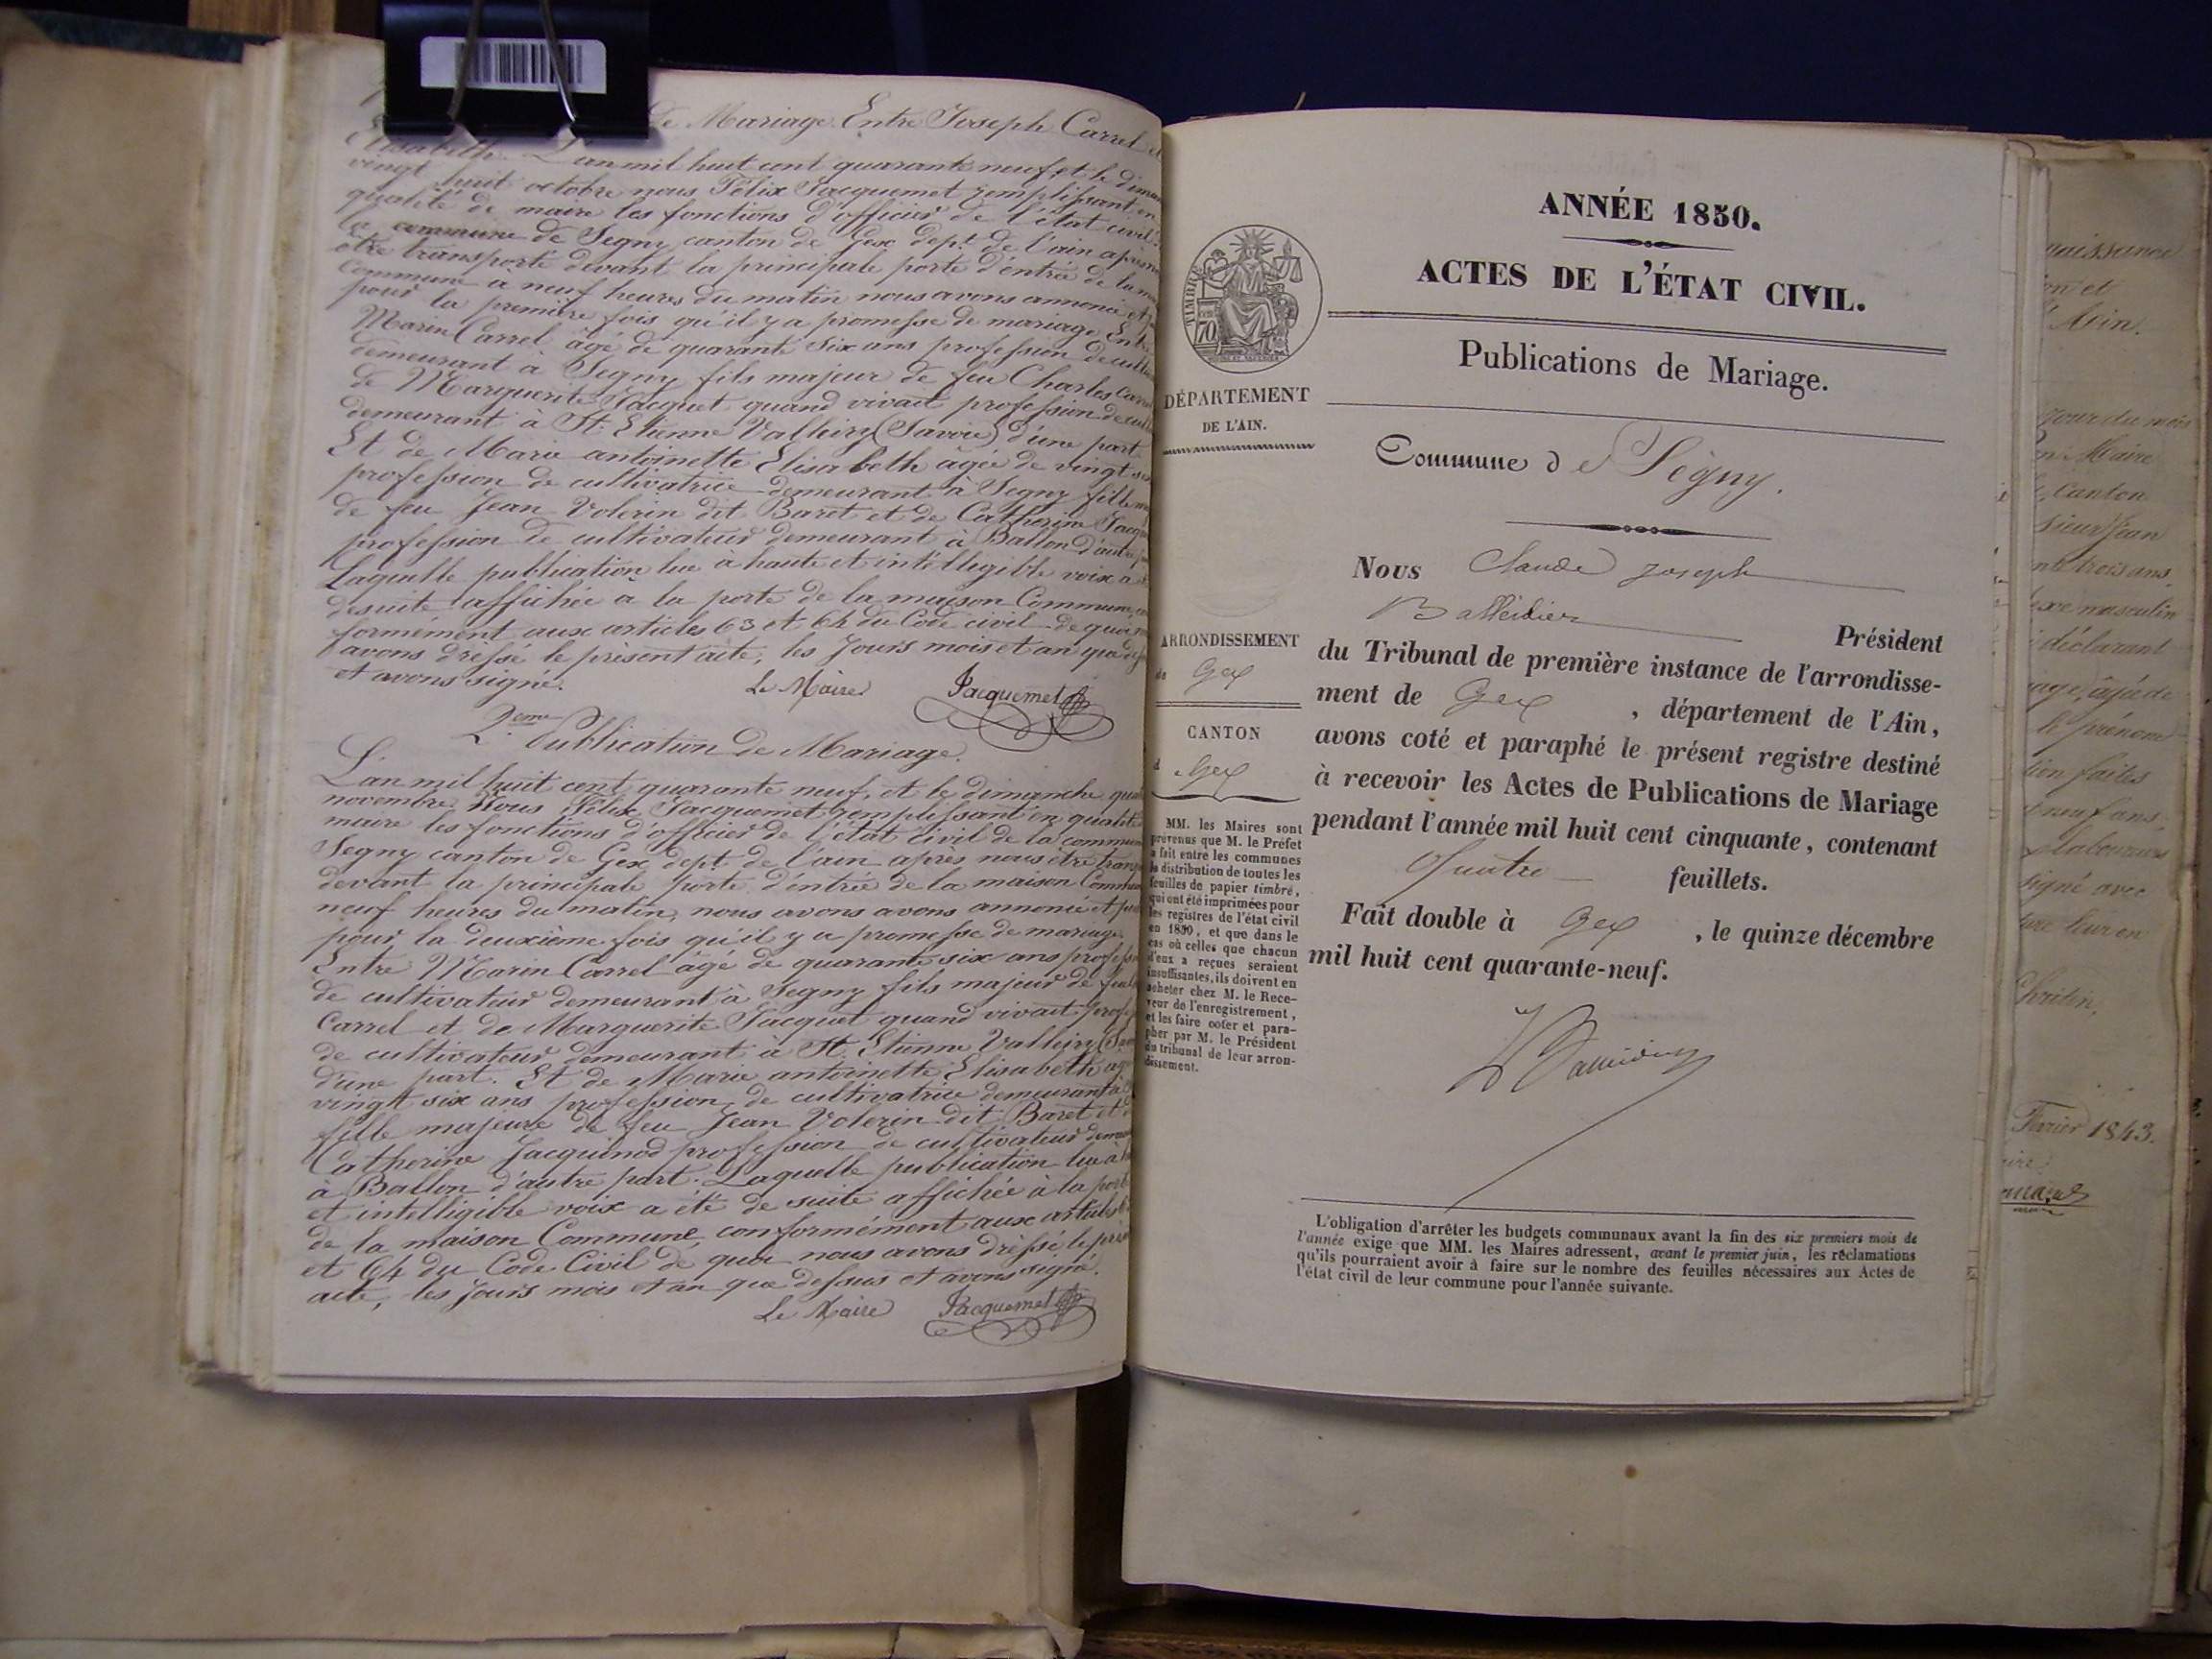 de Mariage. Entre Joseph Carrel et
Elisabeth. L'an mil huit cent quarante neuf, et le diman
vingt huit octobre nous Félix Jacquemet remplissant en
qualité de maire les fonctions d'officier de l'état civil
la commune de Segny canton de Gex dept. de l'ain apres n
être transporté devant la principale porte d'entrée de la m
Commune à neuf heures du matin nous avons annoncé et p
pour la première fois qu'il y a promesse de mariage Entr
Marin Carrel âgé de quarante six ans profession de culti
demeurant à Segny fils majeur de feu Charles Carr
de Marguerite Jacquet quand vivait profession de cult
demeurant à St. Etienne Valleiry (Savoie) d'une part
Et de Marie antoinette Elisabeth âgée de vingt s
profession de cultivatrice demeurant à Segny fille m
de feu Jean Volerin dit Baret et de Catherine Jacqu
profession de cultivateur demeurant à Ballon d'autre p
Laquelle publication lue à haute et intélligible voix a
de suite affichée à la porte de la maison Commune, co
formément aux articles 63 et 64 du Code civil de quoi n
avons dressé le présent acte, les jours mois et an que de
et avons signé.
Le Maire Jacquemet
2.eme Publication de Mariage.
L'an mil huit cent quarante neuf, et le dimanche qua
novembre Nous Félix Jacquemet remplissant en qualité
maire les fonctions d'officier de l'état civil de la commun
Segny canton de Gex dept. de l'ain apres nous être trans
devant la principale porte d'entrée de la maison Commun
neuf heures du matin, nous avons avons annoncé et pub
pour la deuxième fois qu'il y a promesse de mariage
Entre Marin Carrel âgé de quarante six ans profess
de cultivateur demeurant à Segny fils majeur de feu
Carrel et de Marguerite Jacquet quand vivait prof
de cultivateur demeurant à St. Etienne Valleiry (Sa
d'une part. Et de Marie antoinette Elisabeth ag
vingt six ans profession de cultivatrice demeurant à
fille majeure de feu Jean Volerin dit Baret et d
Catherine Jacquinod profession de cultivateur demeu
à Ballon d'autre part. Laquelle publication lue à
et intelligible voix a été de suite affichée à la port
de la maison Commune, conformément aux articles 6
et 64 du Code Civil de quoi nous avons dréssé le pré
acte, les jours mois et an que dessus et avons signé.
Le Maire Jacquemet
TIMBRE
70
DÉPARTEMENT
DE L'AIN.
ARRONDISSEMENT
de Gex
CANTON
d Gex
MM. les Maires sont
prévenus que M. le Préfet
a fait entre les communes
la distribution de toutes les
feuilles de papier timbré,
qui ont été imprimées pour
les registres de l'état civil
en 1850, et que dans le
cas où celles que chacun
d'eux a reçues seraient
insuffisantes, ils doivent en
acheter chez M. le Rece-
veur de l'enregistrement,
et les faire coter et para-
pher par M. le Président
du tribunal de leur arron-
dissement.
ANNÉE 1850.
ACTES DE L'ÉTAT CIVIL.
Publications de Mariage.
Commune de Ségny.
Nous Claude Joseph
Balleidier Président
du Tribunal de première instance de l'arrondisse-
ment de Gex , département de l'Ain,
avons coté et paraphé le présent registre destiné
à recevoir les Actes de Publications de Mariage
pendant l'année mil huit cent cinquante, contenant
Quatre feuillets.
Fait double à Gex , le quinze décembre
mil huit cent quarante-neuf.
L'obligation d'arrêter les budgets communaux avant la fin des six premiers mois de
l'année exige que MM. les Maires adressent, avant le premier juin, les réclamations
qu'ils pourraient avoir à faire sur le nombre des feuilles nécessaires aux Actes de
l'état civil de leur commune pour l'année suivante.
naissance
on et
l'Ain.
jour du mois
en Maire
Canton
sieur Jean
nte trois ans
sexe masculin
déclarant
âgée de
le prénom
tion faites
neuf ans,
laboureur
signé avec
leur en
Février 1843.